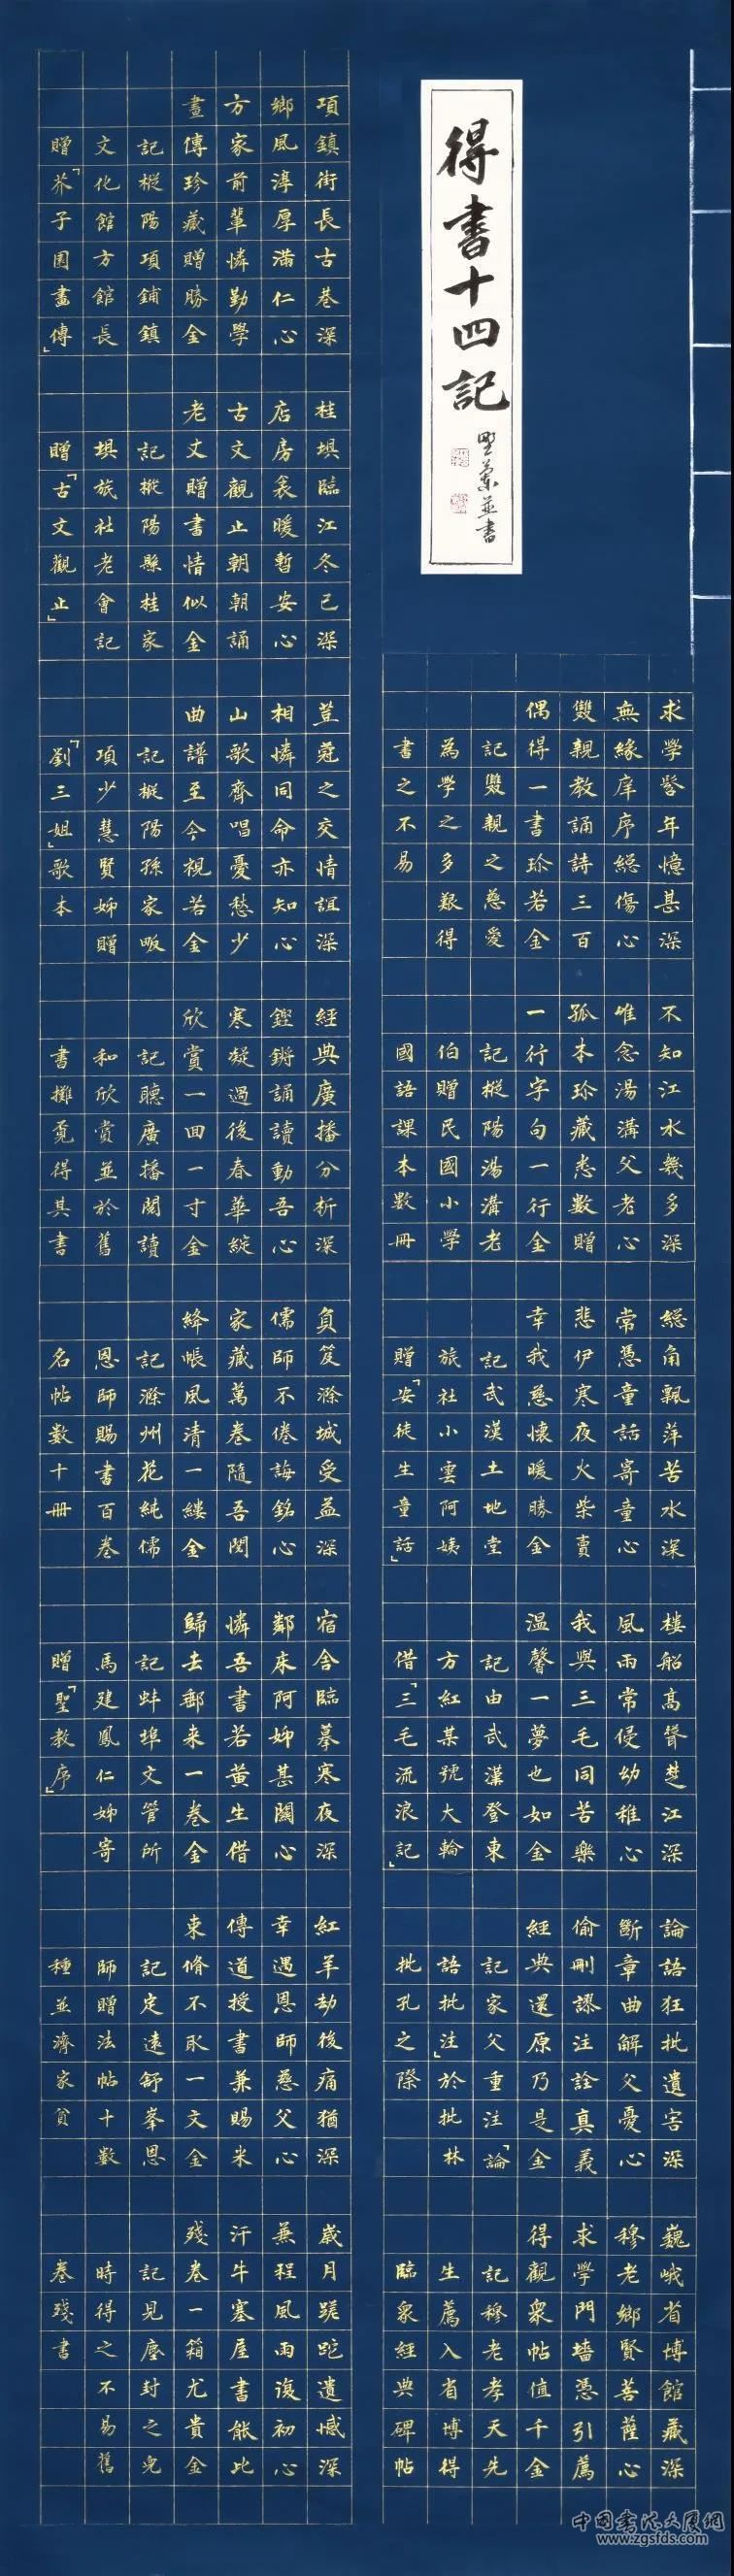 得書十四記
墅蘭並書
求學髫年憶甚深
無緣庠序總傷心
雙親教誦詩三百
偶得一書珍若金
記雙親之慈愛
為學之多艱得
書之不易
不知江水幾多深
唯念湯溝父老心
孤本珍藏悉數贈
一行字句一行金
記樅陽湯溝老
伯贈民國小學
國語課本數冊
總角飄萍苦水深
常憑童話寄童心
悲伊寒夜火柴賣
幸我慈懷暖勝金
記武漢土地堂
旅社小雲阿姨
贈「安徒生童話」
樓船高聳楚江深
風雨常侵幼稚心
我與三毛同苦樂
温馨一夢也如金
記由武漢登東
方紅某號大輪
借「三毛流浪記」
論語狂批遺害深
斷章曲解父憂心
偷刪謬注詮真義
經典還原乃是金
記家父重注「論
語批注」於批林
批孔之際
巍峨省博館藏深
穆老鄉賢菩薩心
求學門墻憑引薦
得觀衆帖值千金
記穆老孝天先
生薦入省博得
臨衆經典碑帖
項鎮街長古巷深
鄉風淳厚滿仁心
方家前輩憐勤學
畫傳珍藏贈勝金
記樅陽項鋪鎮
文化館方館長
贈「芥子園畫傳」
桂垻臨江冬已深
店房衾暖暫安心
古文觀止朝朝誦
老丈贈書情似金
記樅陽縣桂家
垻旅社老會記
贈「古文觀止」
荳蔻之交情誼深
相憐同命亦知心
山歌齊唱憂愁少
曲譜至今視若金
記樅陽孫家畈
項少慧賢姊贈
「劉三姐」歌本
經典廣播分析深
鏗鏘誦讀動吾心
寒凝過後春華綻
欣賞一回一寸金
記聽廣播閱讀
和欣賞並於舊
書攤覓得其書
負笈滁城受益深
儒師不倦誨銘心
家藏萬卷隨吾閱
絳帳風清一縷金
記滁州花純儒
恩師賜書百卷
名帖數十冊
宿舍臨摹寒夜深
鄰床阿姊甚關心
憐吾書若黃生借
歸去郵來一卷金
記蚌埠文管所
馬建鳳仁姊寄
贈「聖教序」
紅羊劫後痛猶深
幸遇恩師慈父心
傳道授書兼賜米
束脩不取一文金
記定遠舒峯恩
師贈法帖十數
種並濟家貧
歲月蹉跎遺憾深
兼程風雨復初心
汗牛塞屋書能比
殘卷一箱尤貴金
記見塵封之兒
時得之不易舊
卷殘書
中國書法大厦網
www.zgsfds.com